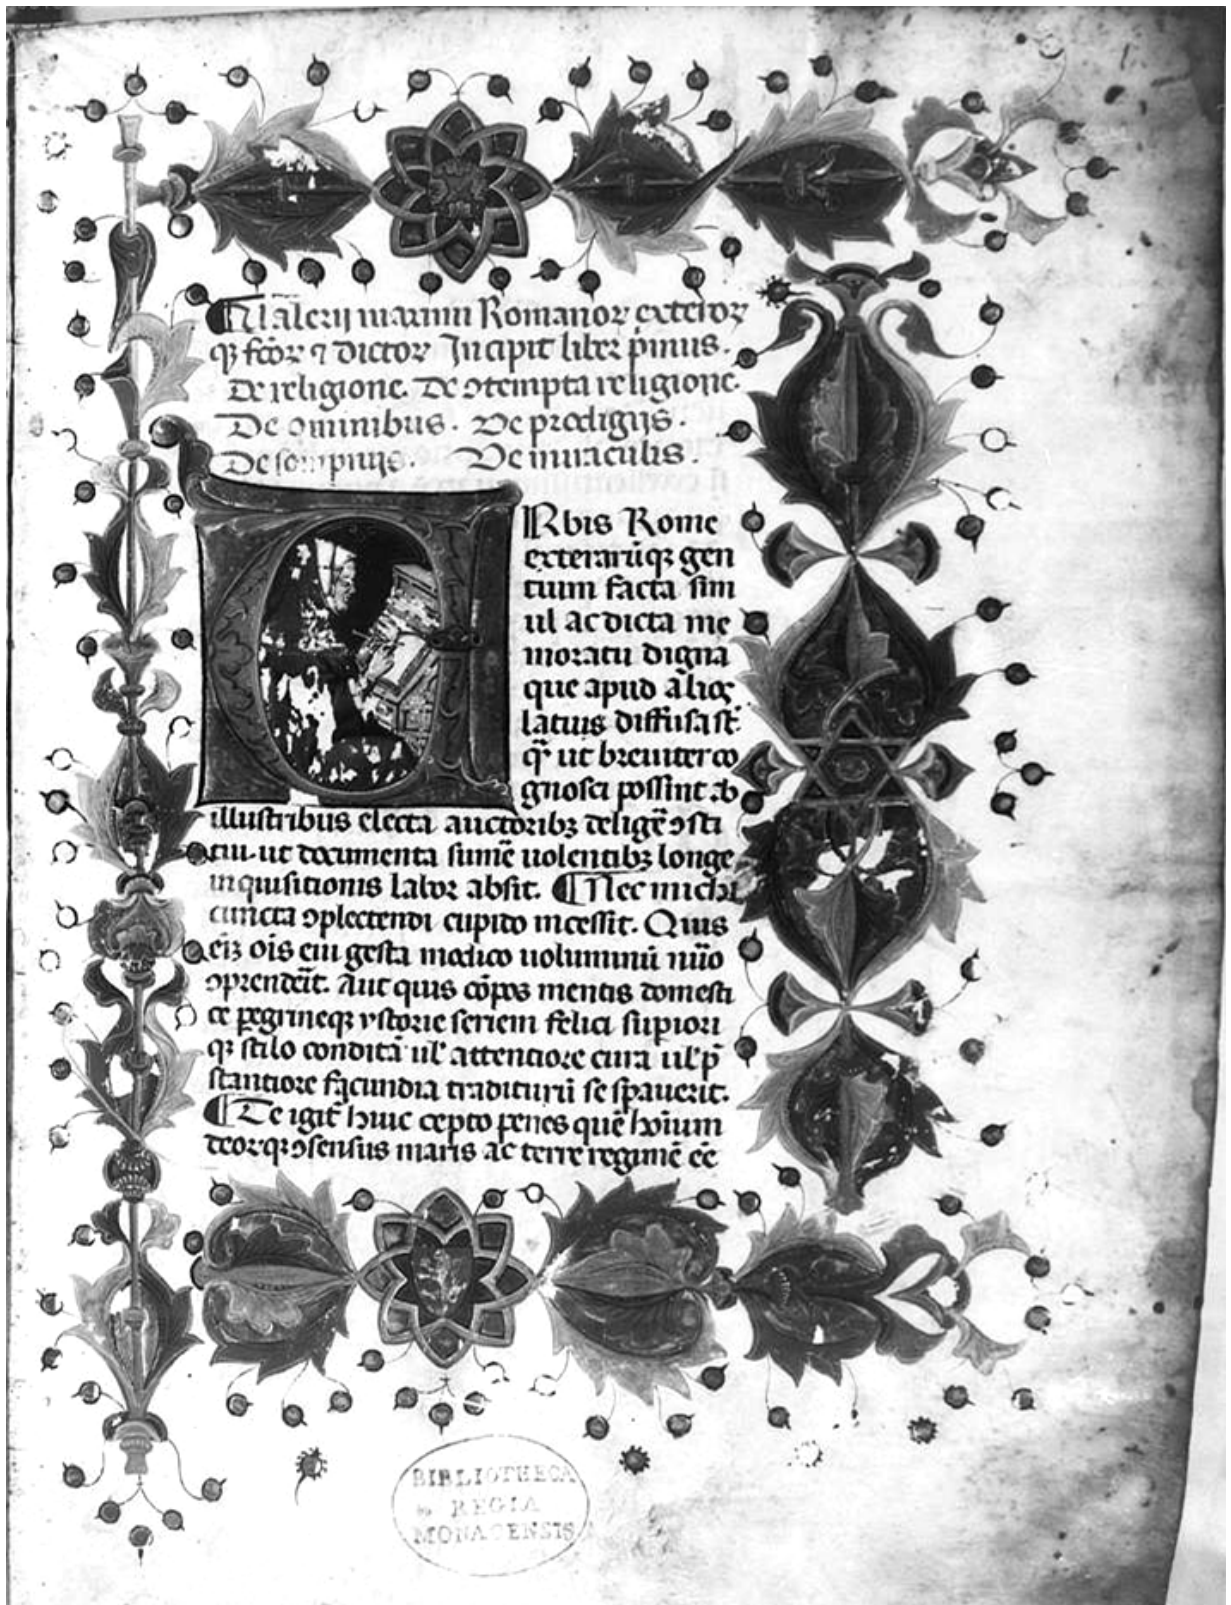 Valerij maximi Romanoꝝ exteroꝝ
qꝫ fcōꝝ ⁊ dictoꝝ Incipit liber p̄imus.
De religione. De ꝯtempta religione.
De ominibus. De prodigijs.
De sompnijs. De miraculis.
URbis Rome
exterarūqꝫ gen
tium facta sim
ul ac dicta me
moratu digna
que apud alios
latius diffusa st̄
qͫ ut breuiter co
gnosci possint ab
illustribus electa auctoribꝫ deligēꝯsti
tui. ut documenta sumē uolentibꝫ longe
inquisitionis labor absit. ¶ Nec michi
cuncta ꝯplectendi cupido incessit. Quis
eīꝫ oīs eui gesta modico uoluminū nūo
ꝯprenderit. Aut quis cōpos mentis domesti
ce peg̃neqꝫ ystorie seriem felici supiori
qꝫ stilo conditā ul' attentiore cura ul' p̄
stantiore facundia traditurū se spauerit.
¶ Te igit̄ huic cepto penes quē hōium
deorqꝫ ꝯsensus maris ac terre regimē eē
BIBLIOTHECA
REGIA
MONACENSIS